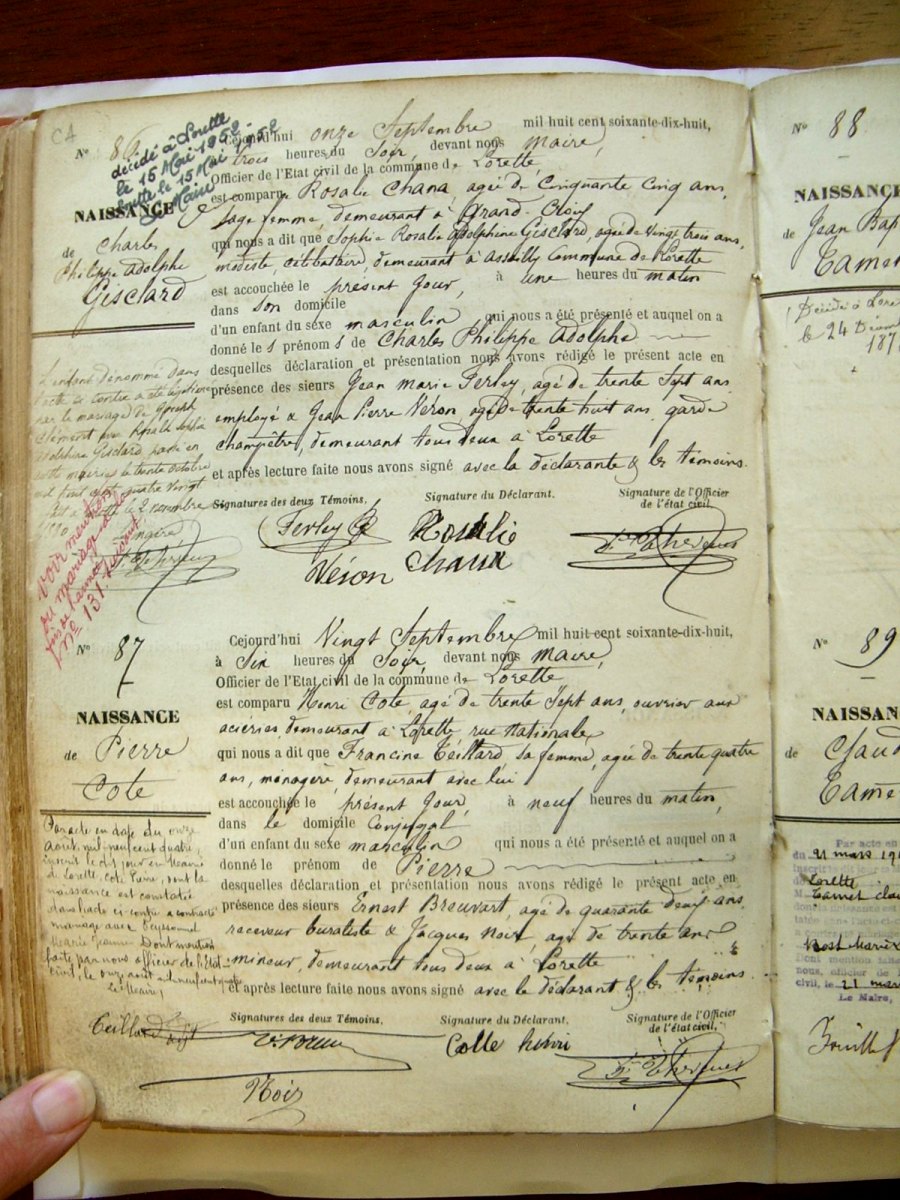 C4
N° 86.
décédé à Lorette
le 15 Mai 1952
Lorette le 15 Mai 1952
Maire
NAISSANCE
de Charles
Philippe Adolphe
Gisclard
Cejourd'hui onze Septembre mil huit cent soixante-dix-huit,
à trois heures du Soir, devant nous Maire,
Officier de l'Etat civil de la commune de Lorette,
est comparu Rosalie Chana, agée de Cinquante Cinq ans,
Sage femme, demeurant à Grand-Croix
qui nous a dit que Sophie Rosalie Adolphine Gisclard, agée de Vingt trois ans,
modiste, célibataire, demeurant à Assailly Commune de Lorette
est accouchée le présent Jour, à une heures du matin
dans Son domicile
d'un enfant du sexe masculin qui nous a été présenté et auquel on a
donné le s prénom s de Charles Philippe Adolphe
desquelles déclaration et présentation nous avons rédigé le présent acte en
présence des sieurs Jean Marie Ferley, agé de trente Sept ans
employé & Jean Pierre Véron agé de trente huit ans garde
champêtre, demeurant tous deux à Lorette
et après lecture faite nous avons signé avec la déclarante & les témoins.
L'enfant dénommé dans
l'acte ci contre a été légitimé
par le mariage de Joseph
Clément avec Rosalie Sophie
Adolphine Gisclard, passé en
cette mairie le trente octobre
mil huit cent quatre vingt
Lorette le 2 novembre
1880
voir mention
du mariage
n° 131
Signatures des deux Témoins,
Signature du Déclarant.
Signature de l'Officier
de l'état civil,
Ferley
Rosalie
Véron
Chana
N° 87
NAISSANCE
de Pierre
Cote
Cejourd'hui Vingt Septembre mil huit cent soixante-dix-huit,
à Six heures du Soir, devant nous Maire,
Officier de l'Etat civil de la commune de Lorette,
est comparu Henri Cote, agé de trente Sept ans, ouvrier aux
acieries demeurant à Lorette rue Nationale,
qui nous a dit que Francine Teillard, sa femme, agée de trente quatre
ans, ménagère, demeurant avec lui
est accouchée le présent Jour, à neuf heures du matin,
dans le domicile Conjugal
d'un enfant du sexe masculin qui nous a été présenté et auquel on a
donné le prénom de Pierre
desquelles déclaration et présentation nous avons rédigé le présent acte en
présence des sieurs Ernest Breuvart, agé de quarante deux ans
receveur buraliste & Jacques Noir, agé de trente ans
mineur, demeurant tous deux à Lorette
et après lecture faite nous avons signé avec le déclarant & les témoins.
Par acte en date du onze
Août, mil neuf cent quatre,
inscrit le dit jour en Mairie
de Lorette, Cote Pierre, dont la
naissance est constatée
dans l'acte ci contre a contracté
mariage avec
Marie Jeanne Dont mention
faite par nous officier de l'Etat
civil, le onze août mil neuf cent quatre
Le Maire,
Signatures des deux Témoins,
Signature du Déclarant,
Signature de l'Officier
de l'état civil,
Teillard
Colle henri
Noir
N° 88.
NAISSANCE
de Jean Bap
Tamet
Décédé à Lore
le 24 Décem
187
N° 89
NAISSAN
de Claud
Tame
Par acte en
du 21 mars 19
Lorette
Tamet Clau
Dont mention fai
nous, officier de l
civil, le 21 mars
Le Maire,